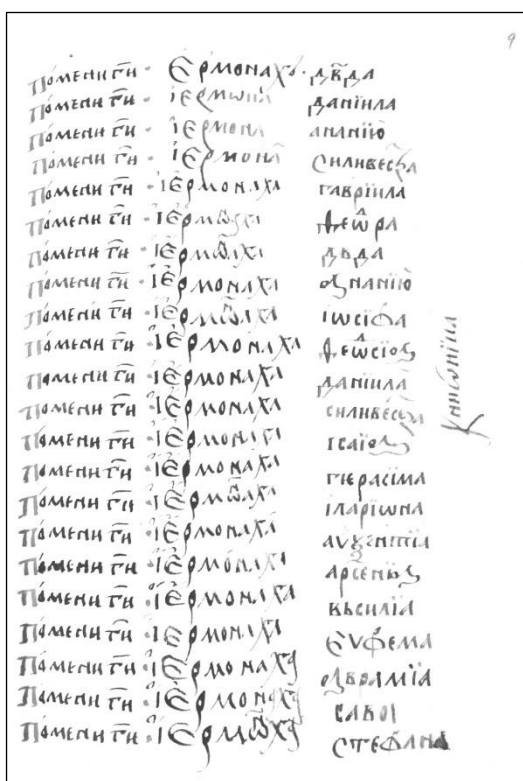 9
Помени г҃и · Ермонахѡ · дв҃да
Помени г҃и · іермѡна данїила
Помени г҃и · іермона ананїю
Помени г҃и · іермона силивес
Помени г҃и · іермонаха гаврїила
Помени г҃и · іермѡха ѳеѡра
Помени г҃и · іермѡаха дв҃да
Помени г҃и · іермонаха ананїю
Помени г҃и · іермѡаха іѡсифа
Помени г҃и · іермонаха ѳеѡсїѹ
Помени г҃и · іермонаха данїила
Помени г҃и · іермонаха силивес
Помени г҃и · іермонаха ісаїѹ
Помени г҃и · іермонаха герасїма
Помени г҃и · іермѡаха іларїѡна
Помени г҃и · іермонаха аѵѯентїа
Помени г҃и · іермонаха арсенїѧ
Помени г҃и · іермонаха василїа
Помени г҃и · іермонаха еѵфема
Помени г҃и · іермонаха аврамїа
Помени г҃и · іермонаха саво
Помени г҃и · іермѡаха стефана